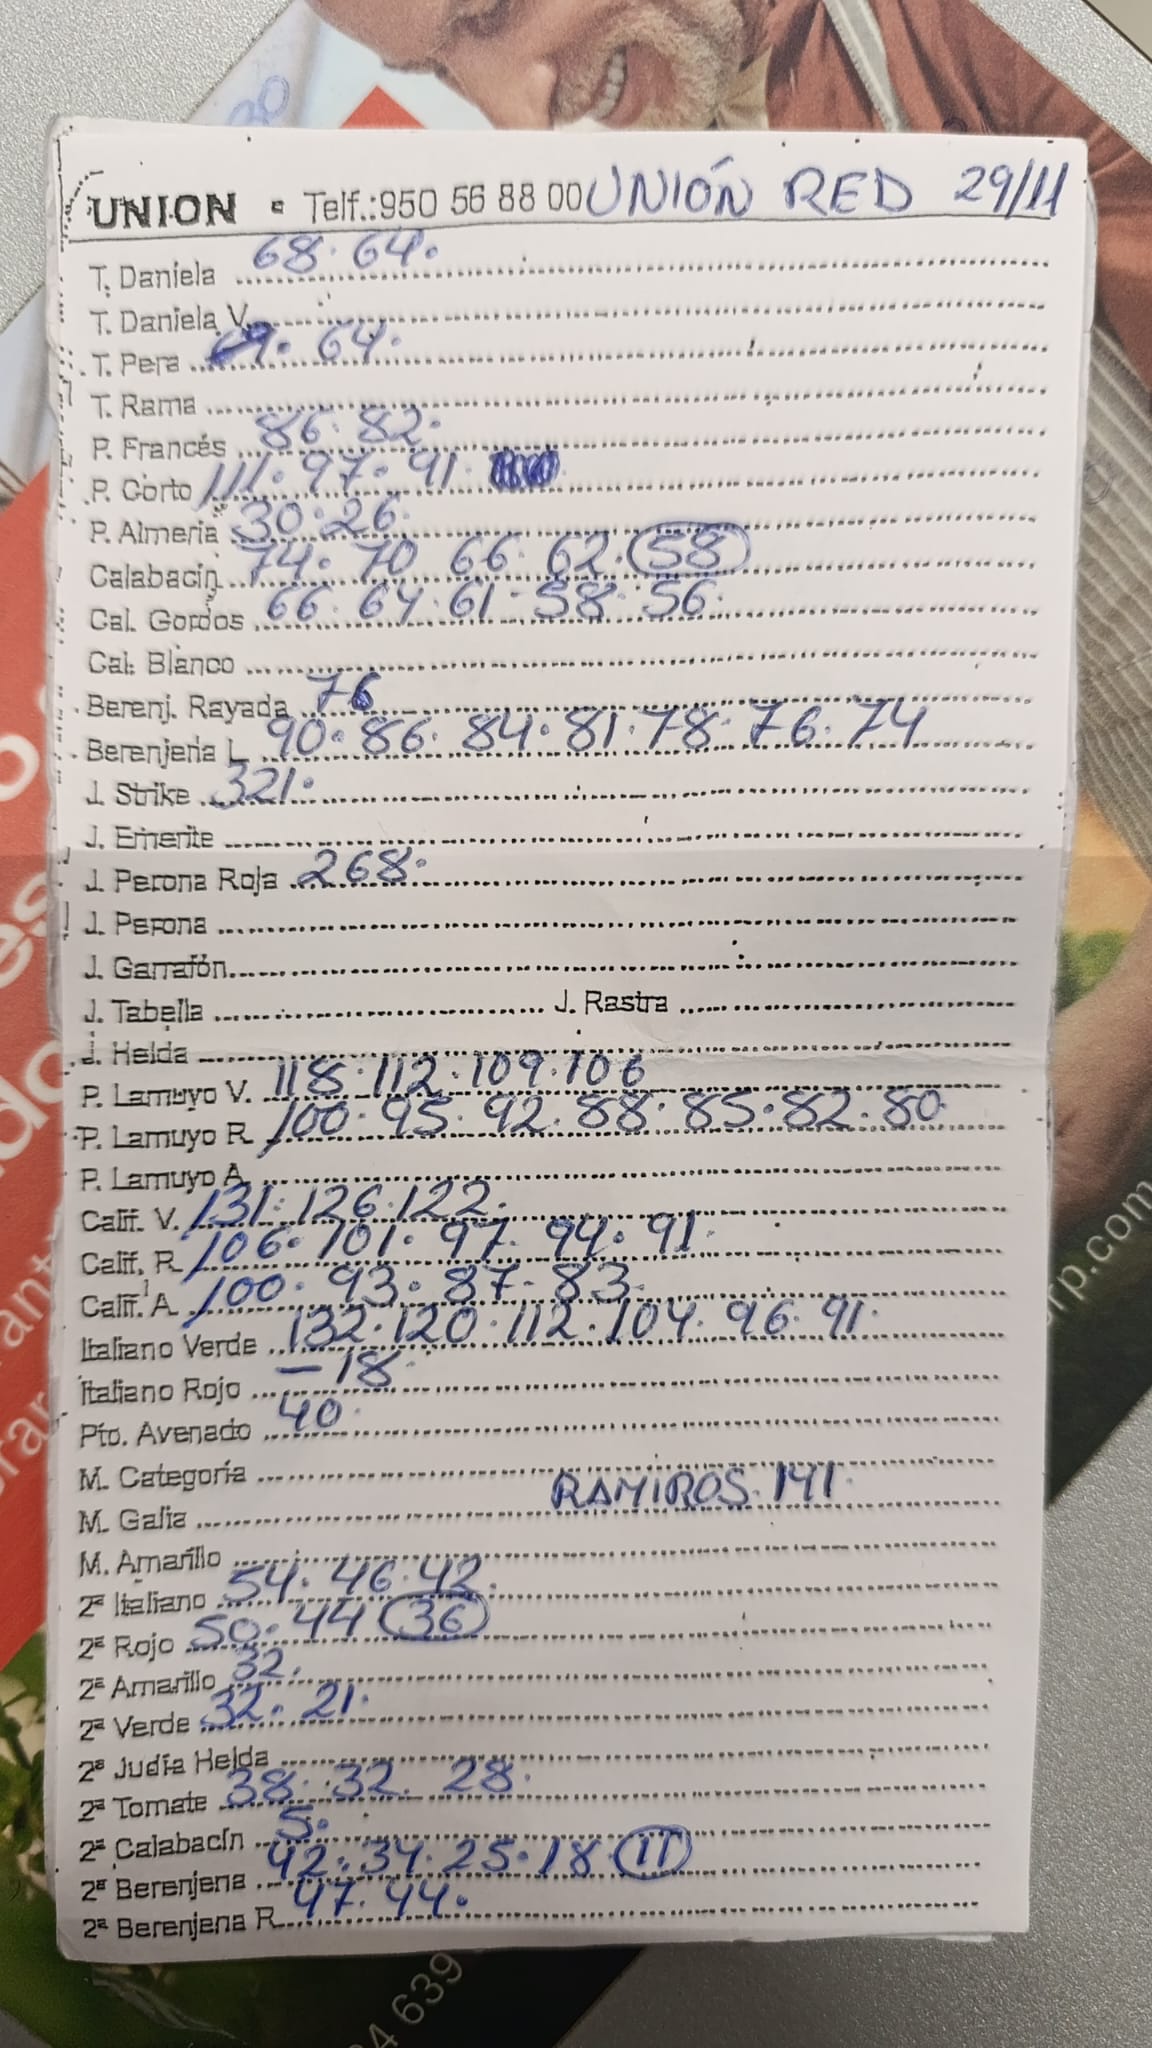 UNION - Telf.:950 56 88 00 UNIÓN RED 29/11
T. Daniela 68. 64.
T. Daniela V.
T. Pera 69. 64.
T. Rama
P. Francés 86. 82.
P. Corto 111. 97. 91.
P. Almeria 30. 26.
Calabacin 74. 70 66. 62. 58
Cal. Gordos 66. 64. 61. 58. 56.
Cal. Blanco
Berenj. Rayada 76
Berenjena L 90. 86. 84. 81. 78. 76. 74
J. Strike 321.
J. Emerite
J. Perona Roja 268.
J. Perona
J. Garrafón
J. Tabella J. Rastra
J. Helda
P. Lamuyo V. 118. 112. 109. 106
P. Lamuyo R 100. 95. 92. 88. 85. 82. 80.
P. Lamuyo A
Calif. V. 131. 126. 122.
Calif. R 106. 101. 97. 94. 91.
Calif. A 100. 93. 87. 83.
Italiano Verde 132. 120. 112. 104. 96. 91.
Italiano Rojo - 18.
Pto. Avenado 40.
M. Categoría
M. Galia RAMIROS. 141.
M. Amarillo
2ª Italiano 54. 46. 42.
2ª Rojo 50. 44 36
2ª Amarillo 32.
2ª Verde 32. 21.
2ª Judía Helda
2ª Tomate 38. 32. 28.
2ª Calabacín 5.
2ª Berenjena 42. 34. 25. 18. 11
2ª Berenjena R 47. 44.
rp.com
4 639